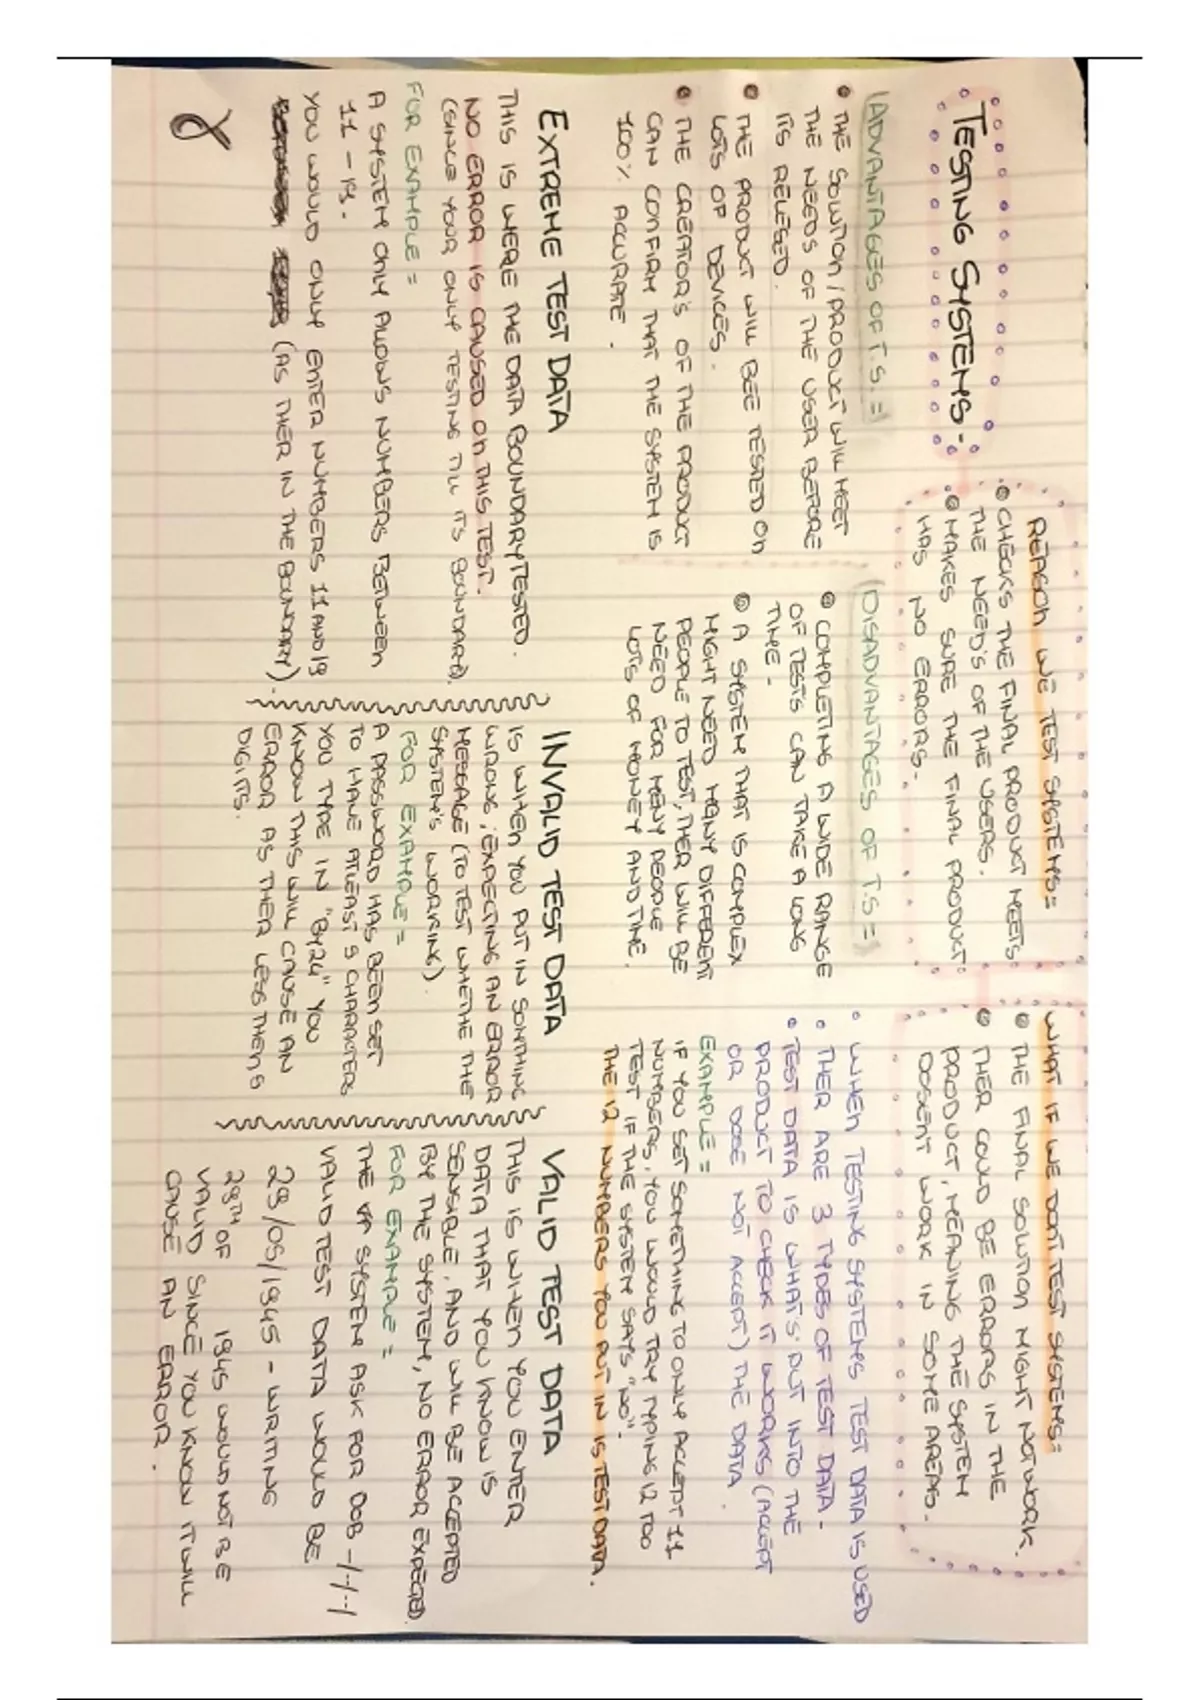 TESTING SYSTEMS-
REASON WE TEST SYSTEMS=
CHECKS THE FINAL PRODUCT MEETS
THE NEED'S OF THE USERS.
MAKES SURE THE FINAL PRODUCT
HAS NO ERRORS.
WHAT IF WE DON'T TEST SYSTEMS=
THE FINAL SOLUTION MIGHT NOT WORK.
THER COULD BE ERRORS IN THE
PRODUCT, MEANING THE SYSTEM
DOSENT WORK IN SOME AREAS.
(ADVANTAGES OF T.S.=)
THE SOLUTION/PRODUCT WILL MEET
THE NEEDS OF THE USER BEFORE
ITS RELESED.
THE PRODUCT WILL BEE TESTED ON
LOTS OF DEVICES.
THE CREATOR'S OF THE PRODUCT
CAN CONFIRM THAT THE SYSTEM IS
100% ACCURATE.
(DISADVANTAGES OF T.S=)
COMPLETING A WIDE RANGE
OF TESTS CAN TAKE A LONG
TIME-
A SYSTEM THAT IS COMPLEX
MIGHT NEED MANY DIFFERENT
PEOPLE TO TEST, THER WILL BE
NEED FOR MENY PEOPLE
LOTS OF MONEY AND TIME.
WHEN TESTING SYSTEMS TEST DATA IS USED
THER ARE 3 TYPES OF TEST DATA-
TEST DATA IS WHAT'S PUT INTO THE
PRODUCT TO CHECK IT WORKS (ACCEPT
OR DOSE NOT ACCEPT) THE DATA.
EXAMPLE=
IF YOU SET SOMETHING TO ONLY ACCEPT 11
NUMBERS, YOU WOULD TRY TYPING 12 TOO
TEST IF THE SYSTEM SAYS "NO".
THE 12 NUMBERS YOU PUT IN IS TEST DATA.
EXTREME TEST DATA
THIS IS WHERE THE DATA BOUNDARY TESTED.
NO ERROR IS CAUSED ON THIS TEST.
(SINCE YOUR ONLY TESTING TILL ITS BOUNDARY).
FOR EXAMPLE=
A SYSTEM ONLY ALLOWS NUMBERS BETWEEN
11-19.
YOU WOULD ONLY ENTER NUMBERS 11 AND 19
(AS THER IN THE BOUNDARY).
INVALID TEST DATA
IS WHEN YOU PUT IN SOMTHING
WRONG, EXPECTING AN ERROR
MESSAGE (TO TEST WHETHE THE
SYSTEM'S WORKING).
FOR EXAMPLE=
A PASSWORD HAS BEEN SET
TO HAVE ATLEAST 9 CHARACTERS
YOU TYPE IN "BY24" YOU
KNOW THIS WILL CAUSE AN
ERROR AS THER LESS THEN 9
DIGITS.
VALID TEST DATA
THIS IS WHEN YOU ENTER
DATA THAT YOU KNOW IS
SENSIBLE, AND WILL BE ACCEPTED
BY THE SYSTEM, NO ERROR EXPECTED.
FOR EXAMPLE=
THE SYSTEM ASK FOR DOB -/-/-/
VALID TEST DATA WOULD BE
29/05/1945 - WRITING
29TH OF 1945 WOULD NOT BE
VALID SINCE YOU KNOW IT WILL
CAUSE AN ERROR.